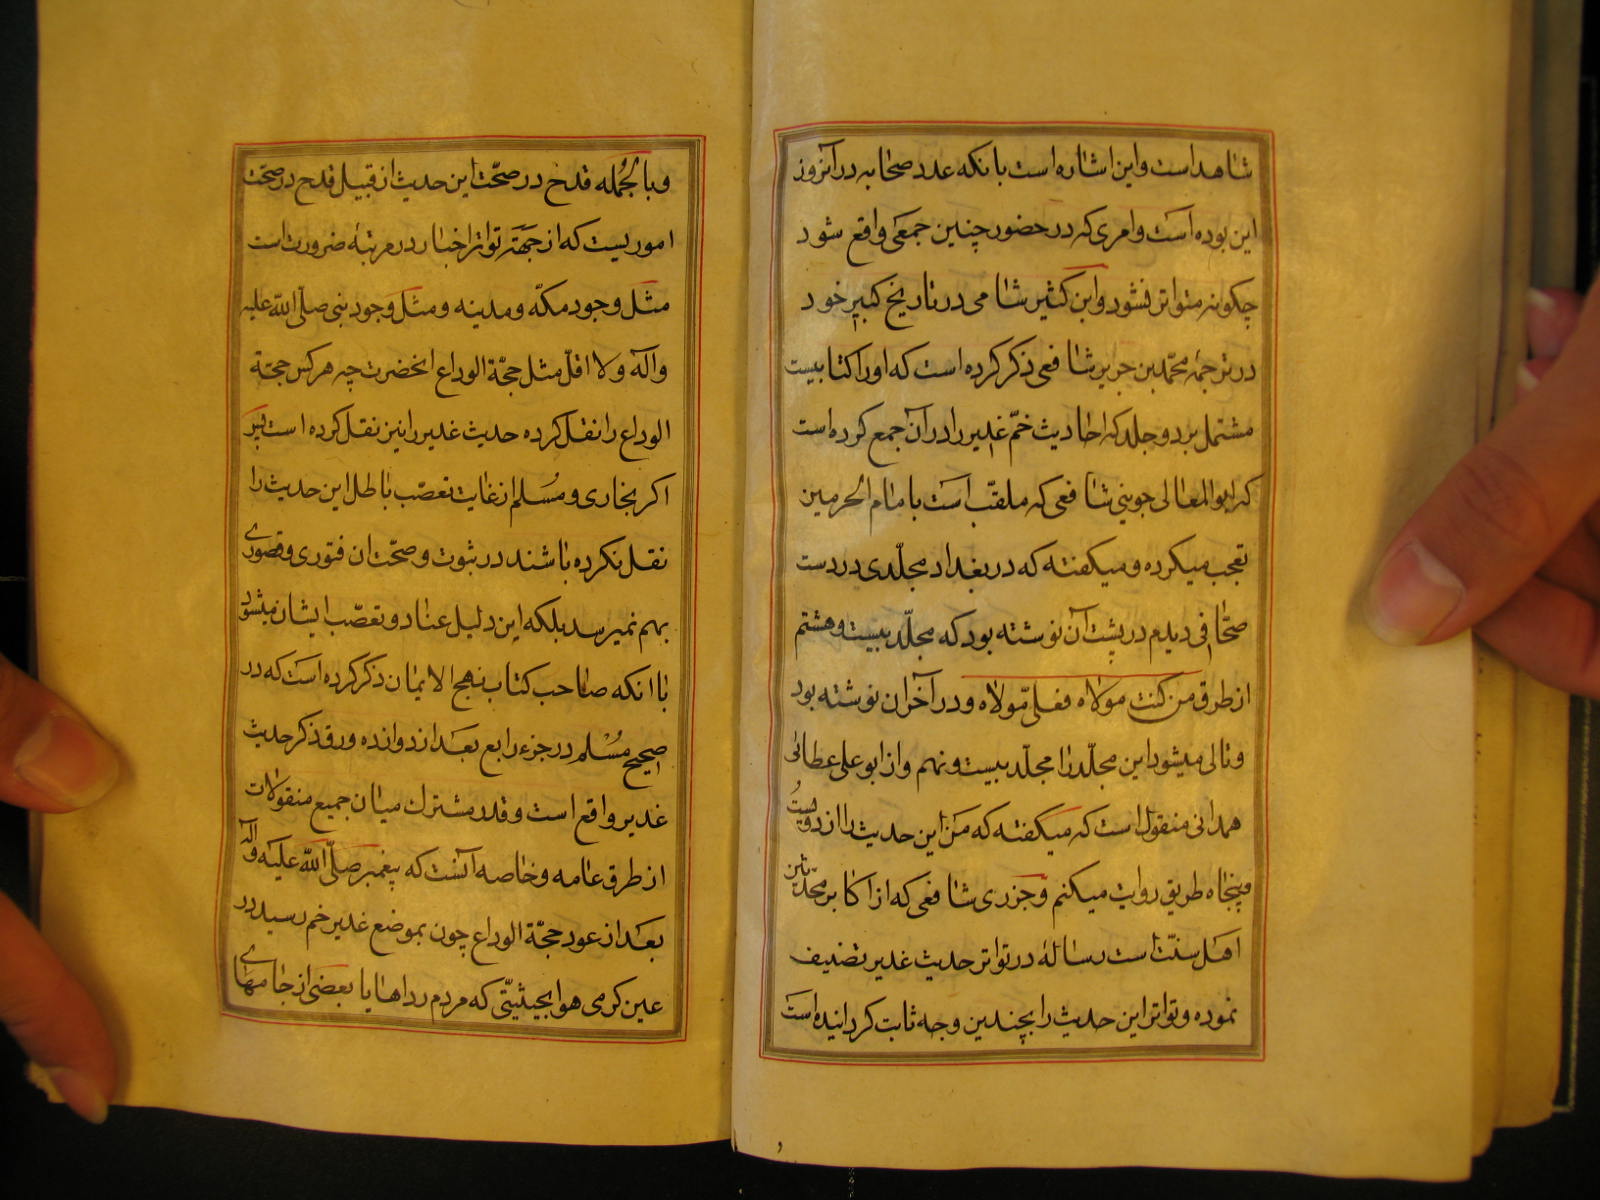 شاهداست و این اشاره است بانکه عدد صحابه در آنروز
این بوده است و امری که در حضور چنین جمعی واقع شود
چکونه متواتر نشود و ابن کثیر شامی در تاریخ کبیر خود
در ترجمهٔ محمّد بن جریر شافعی ذکر کرده است که او را کتابیست
مشتمل بر دو جلد که احادیث خمّ غدیر را در آن جمع کرده است
که ابو المعالی جوینی شافعی که ملقّب است بامام الحرمین
تعجب میکرده و میکفته که در بغداد مجلّدی در دست
صحّافی دیدم در پشت آن نوشته بود که مجلّد بیست و هشتم
از طرق من کنت مولاه فعلیّ مولاه و در آخر ان نوشته بود
و تالی میشود این مجلّد را مجلّد بیست و نهم و از ابو علی عطائی
همدانی منقول است که میکفته که من این حدیث را از دویست
و پنجاه طریق روایت میکنم و جزری شافعی که از اکابر محدّثین
اهل سنّت است رسالهٔ در تواتر حدیث غدیر تصنیف
نموده و تواتر این حدیث را بچندین وجه ثابت کردانیده است
و بالجُمله قدح در صحّت این حدیث از قبیل قدح در صحّت
اموریست که از جهة تواتر اخبار در مرتبهٔ ضرورت است
مثل وجود مکّه و مدینه و مثل وجود نبی صلّی اللّه علیه
و آله و لا اقلّ مثل حجّة الوداع انحضرت چه هر کس حجّة
الوداع را نقل کرده حدیث غدیر را نیز نقل کرده است پس
اکر بخاری و مُسلم از غایت تعصّب باطل این حدیث را
نقل نکرده باشند در ثبوت و صحّت ان فتوری و قصوری
بهم نمیرسد بلکه این دلیل عناد و تعصّب ایشان میشود
با انکه صاحب کتاب نهج الایمان ذکر کرده است که در
صحیح مُسْلم در جزء رابع بعد از دوانده ورق ذکر حدیث
غدیر واقع است و قدر مشترک میان جمیع منقولات
از طرق عامه و خاصه آنست که پیغمبر صلّی اللّه علیه و آله
بعد از عود حجّة الوداع چون بموضع غدیر خم رسید در
عین کرمی هوا بحیثیّتی که مردم رداها یا بعضی از جامهای